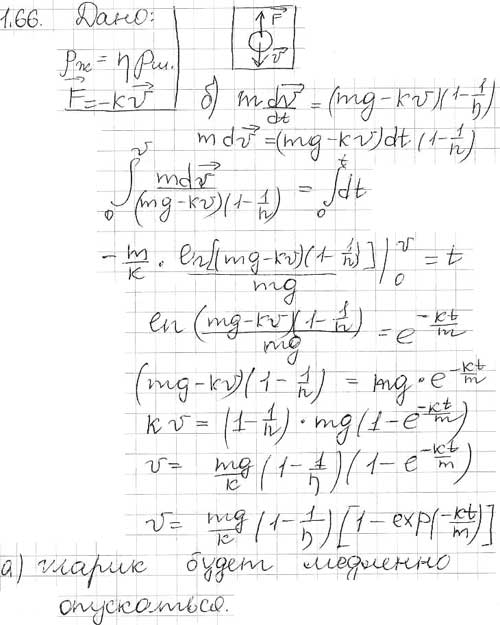 1.66. Дано:
ρж = ηρш.
F⃗ = -kv⃗
F⃗
v⃗
б) m dv⃗/dt = (mg-kv)(1-1/η)
mdv⃗ = (mg-kv)dt (1-1/n)
∫₀^v mdv⃗/((mg-kv)(1-1/n)) = ∫₀^t dt
-m/k · ln[(mg-kv)(1-1/n)]/mg |₀^v = t
ln (mg-kv)(1-1/n)/mg = e^(-kt/m)
(mg-kv)(1-1/n) = mg·e^(-kt/m)
kv = (1-1/n)·mg(1-e^(-kt/m))
v = mg/k (1-1/η)(1-e^(-kt/m))
v = mg/k (1-1/η)[1-exp(-kt/m)]
а) шарик будет медленно
опускаться.